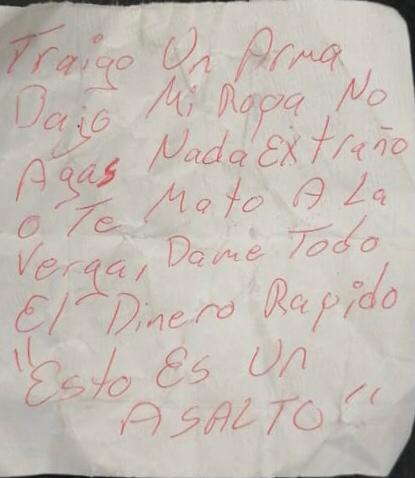 Traigo Un Arma
Dajo Mi Ropa No
Agas Nada Extraño
o Te Mato A La
Verga, Dame Todo
El Dinero Rapido
"Esto Es Un
ASALTO"